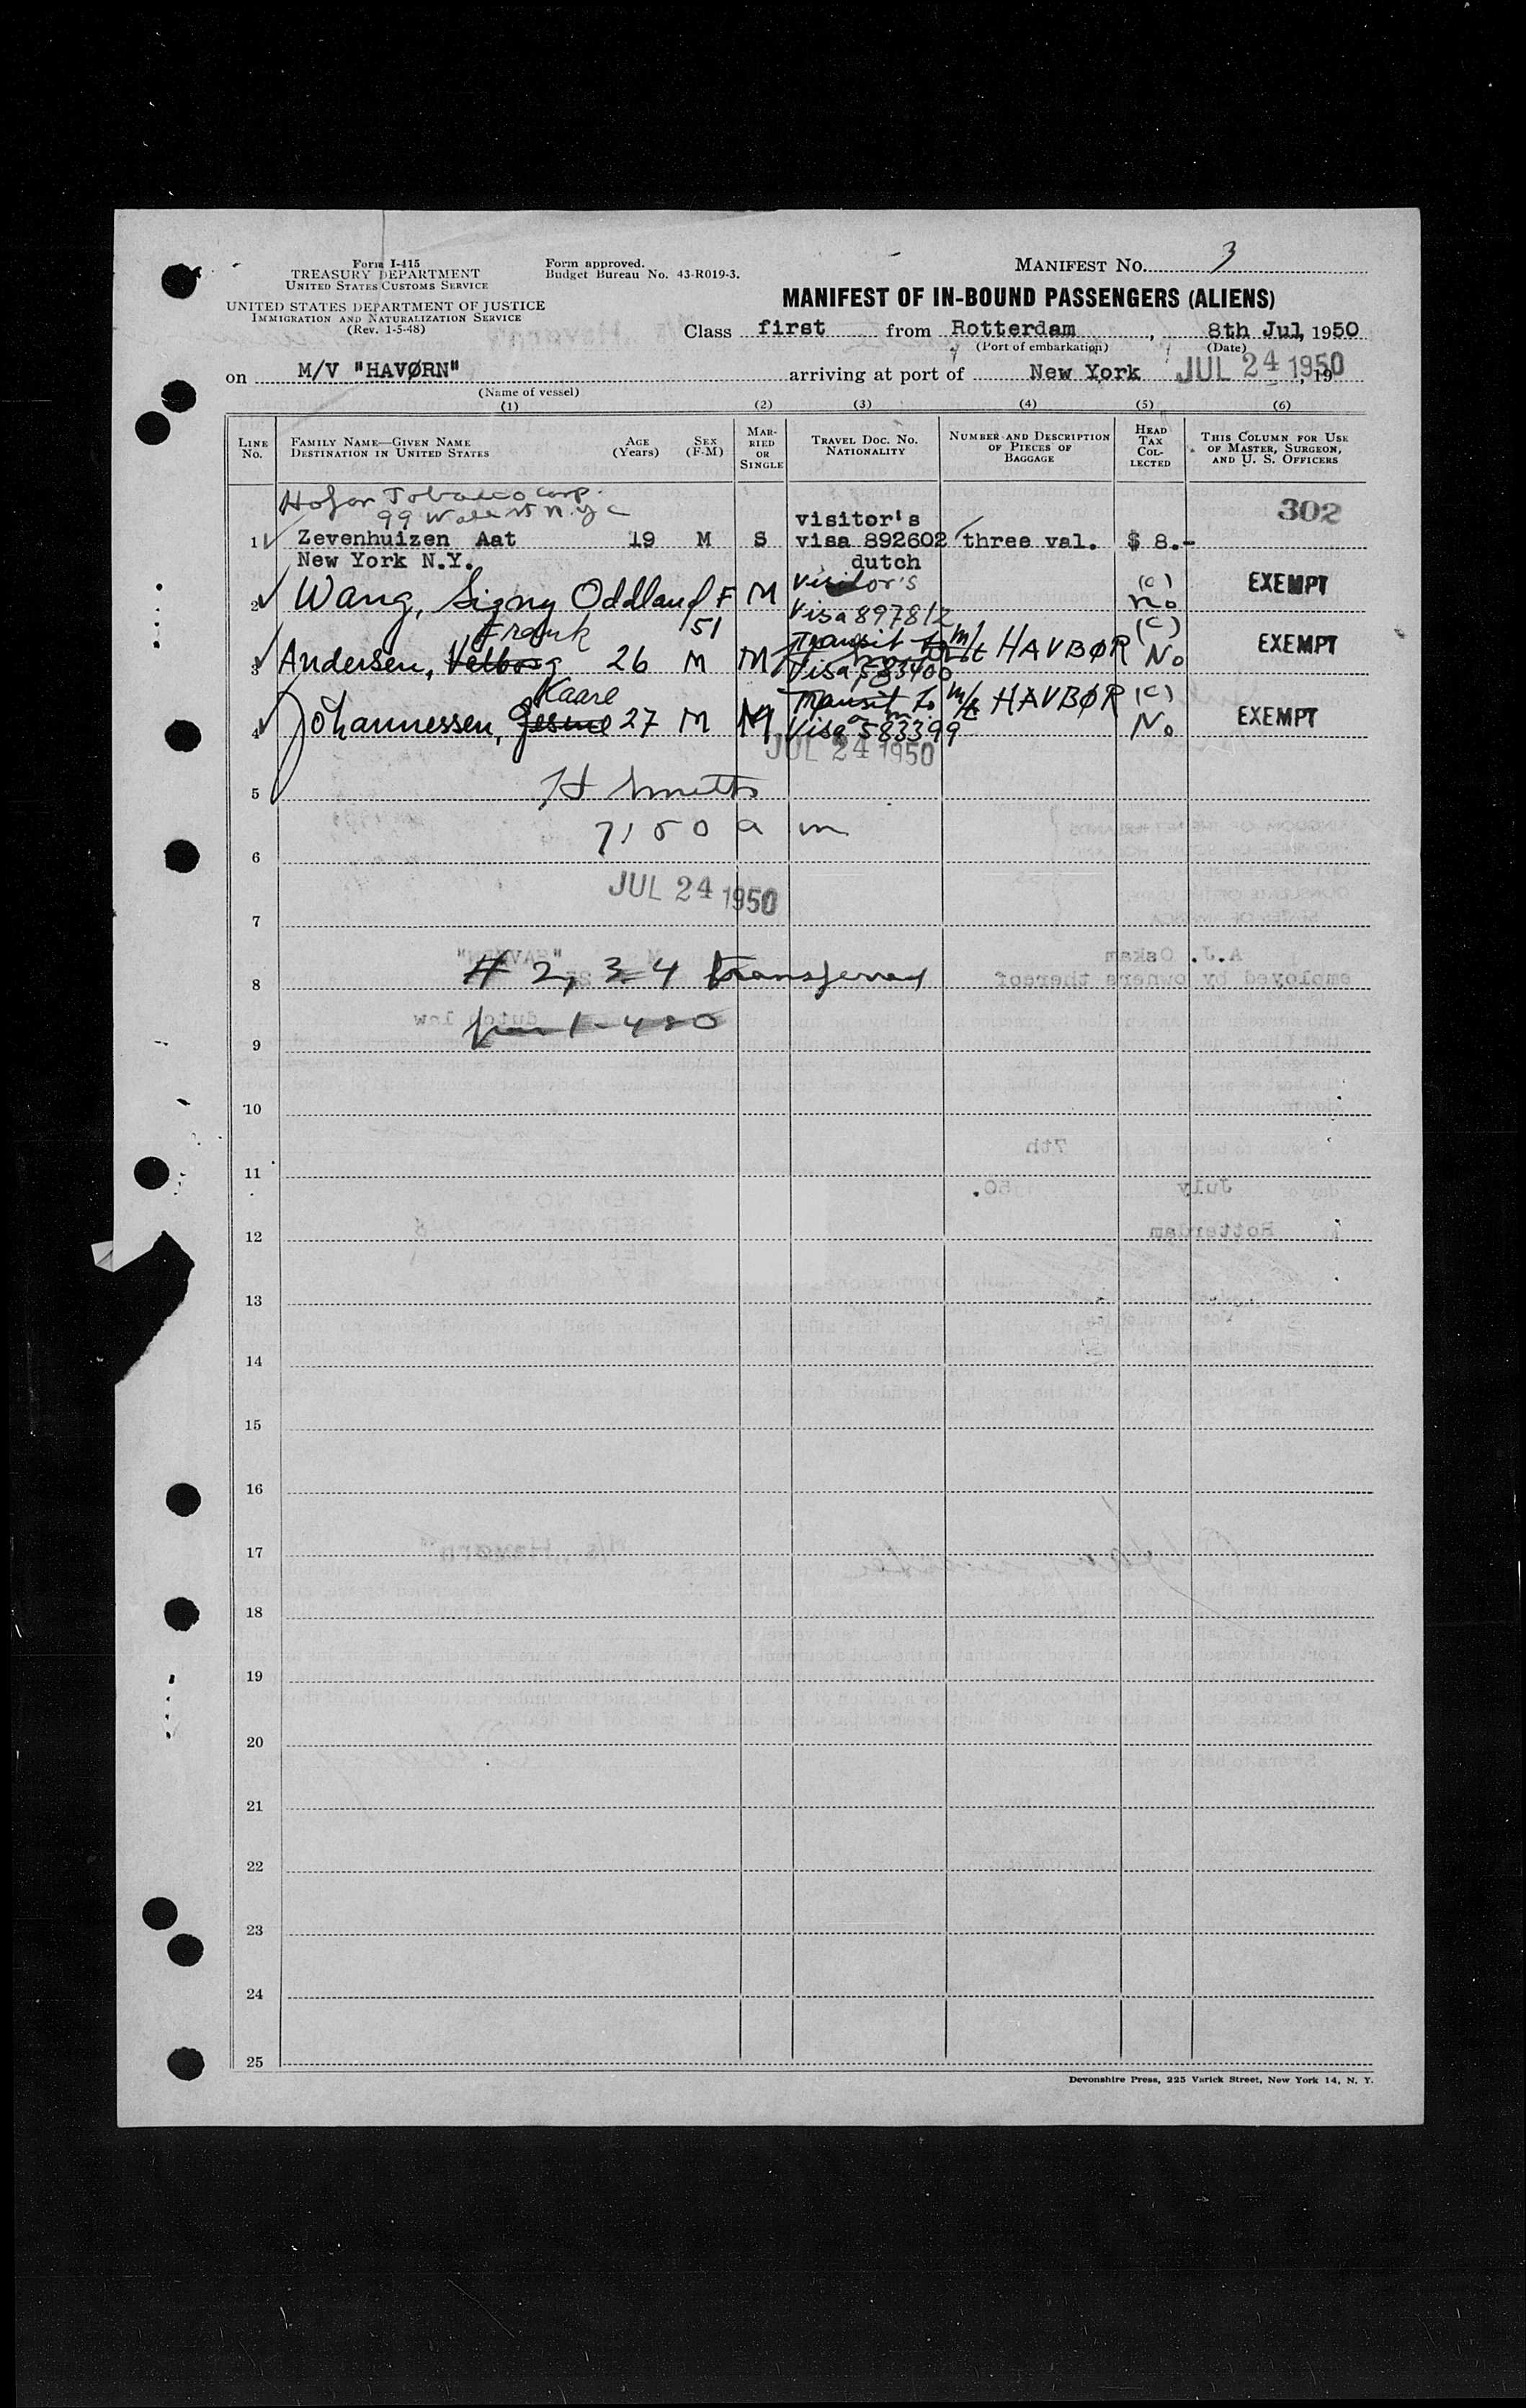 Form I-415
TREASURY DEPARTMENT
UNITED STATES CUSTOMS SERVICE
UNITED STATES DEPARTMENT OF JUSTICE
IMMIGRATION AND NATURALIZATION SERVICE
(Rev. 1-5-48)
Form approved.
Budget Bureau No. 43-R019-3.
MANIFEST NO. 3
MANIFEST OF IN-BOUND PASSENGERS (ALIENS)
Class first from Rotterdam, 8th Jul, 1950
(Port of embarkation) (Date)
on M/V "HAVØRN" arriving at port of New York JUL 24 1950, 19
(Name of vessel)
(1) (2) (3) (4) (5) (6)
LINE NO. FAMILY NAME—GIVEN NAME DESTINATION IN UNITED STATES AGE (Years) SEX (F-M) MARRIED OR SINGLE TRAVEL DOC. NO. NATIONALITY NUMBER AND DESCRIPTION OF PIECES OF BAGGAGE HEAD TAX COLLECTED THIS COLUMN FOR USE OF MASTER, SURGEON, AND U. S. OFFICERS
Tobacco Corp. 302
99 N.Y.C
visitor's
1 Zevenhuizen Aat 19 M S visa 892602 three val. $ 8.-
New York N.Y. dutch
2 Wang, Signy Oddlaug F M Visitor's (c) no EXEMPT
51 Visa 897812
Frank Transit to m/t HAVBØR (c)
3 Andersen, 26 M M Visa 583400 No EXEMPT
Kaare Transit to m/t HAVBØR (c)
4 Johannessen, 27 M M Visa 583399 No EXEMPT
JUL 24 1950
5
7:50 a m
6
JUL 24 1950
7
# 2, 3 4 transferred
8
9
10
11
12
13
14
15
16
17
18
19
20
21
22
23
24
25
Devonshire Press, 225 Varick Street, New York 14, N. Y.